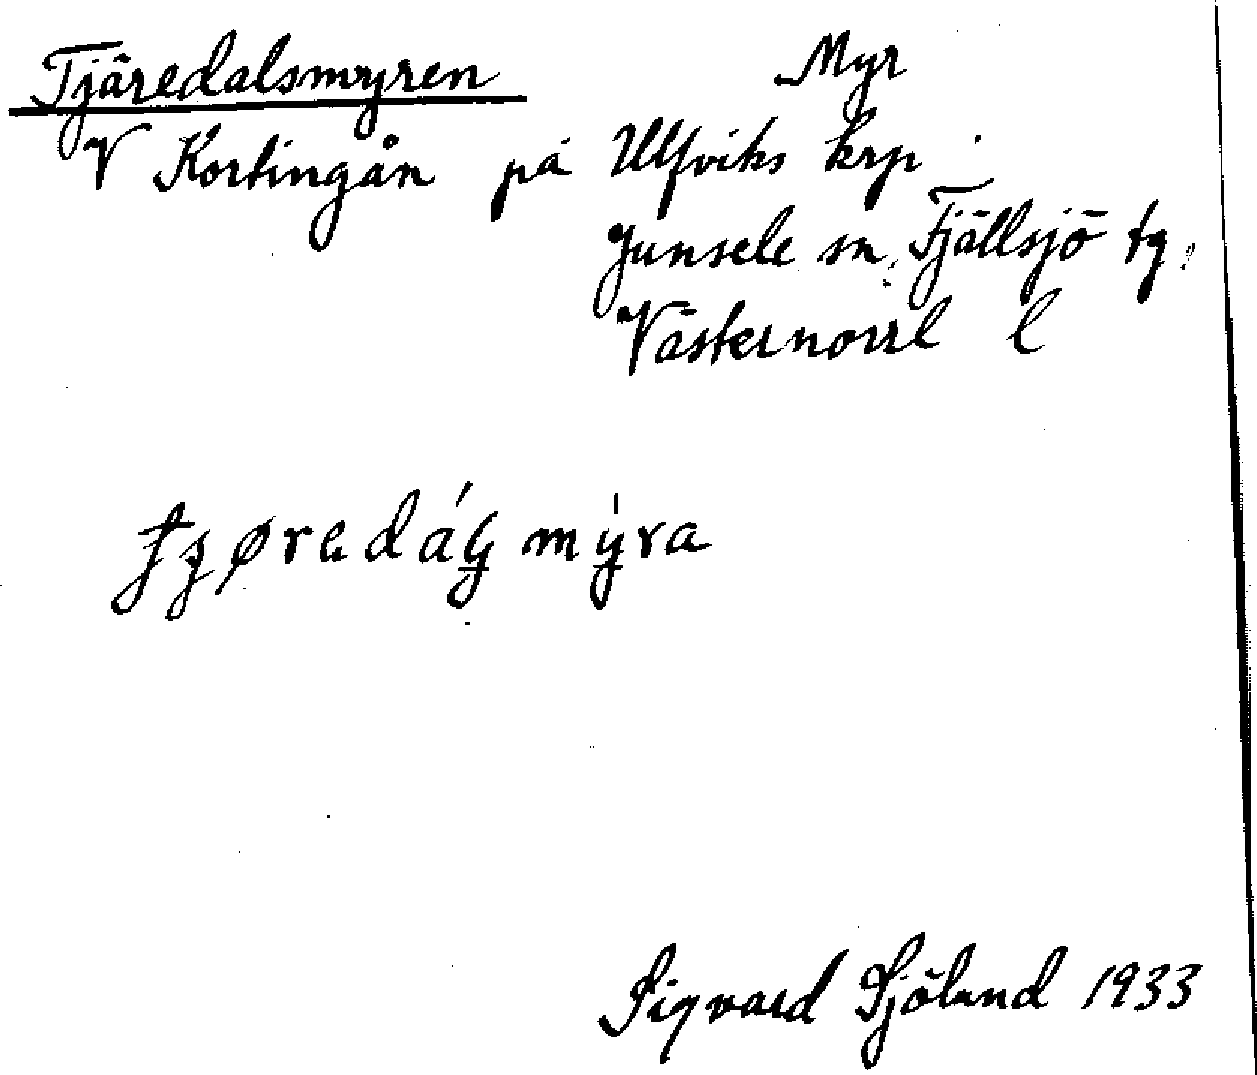 Tjäredalsmyren Myr
V Kortingån på Ulfviks krp
Junsele sn, Fjällsjö tg.
Västernorrl l
Sigvard Sjölund 1933